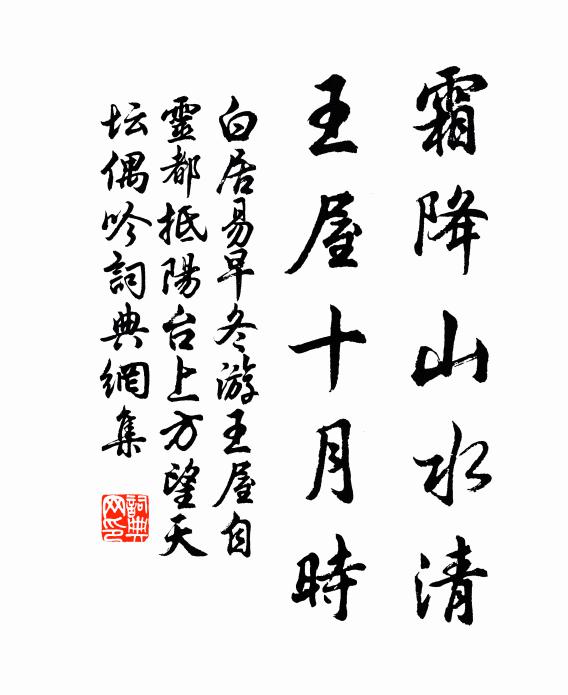 霜降山水清
王屋十月時
白居易早冬游王屋自
靈都抵陽台上方望天
坛偶吟詞典網集
詞典
网印